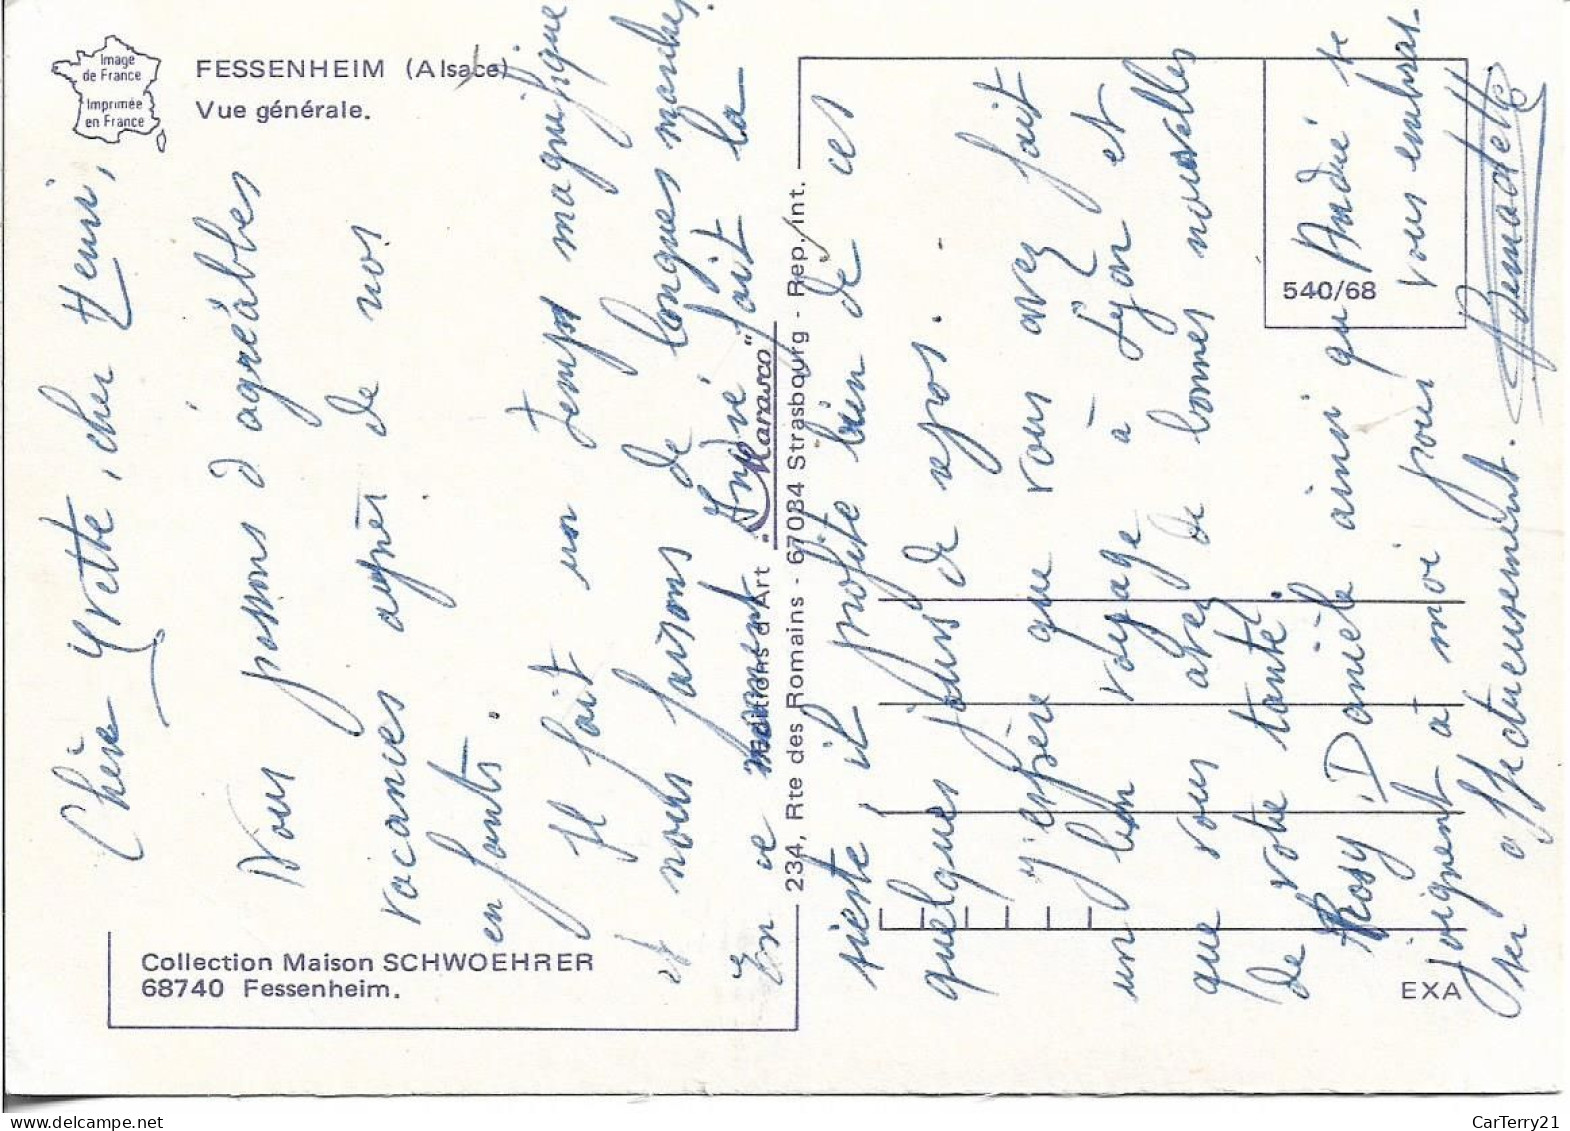 Image
de France
Imprimée
en France
FESSENHEIM (Alsace)
Vue générale.
Chère Yvette, cher Henri,
Nous passons d'agréables
vacances auprès de nos
enfants.
Il fait un temps magnifique
et nous faisons de longues marches.
En ce moment André fait la
sieste, il profite bien de ces
quelques jours de repos.
J'espère que vous avez fait
un bon voyage à Lyon et
que vous avez de bonnes nouvelles
de votre tante.
Rosy, Danièle ainsi qu'André se
joignent à moi pour vous embras-
ser affectueusement. Bernadette
Editions d'Art "Marasco"
234, Rte des Romains - 67084 Strasbourg - Rep. int.
540/68
Collection Maison SCHWOEHRER
68740 Fessenheim.
EXA
CarTerry21